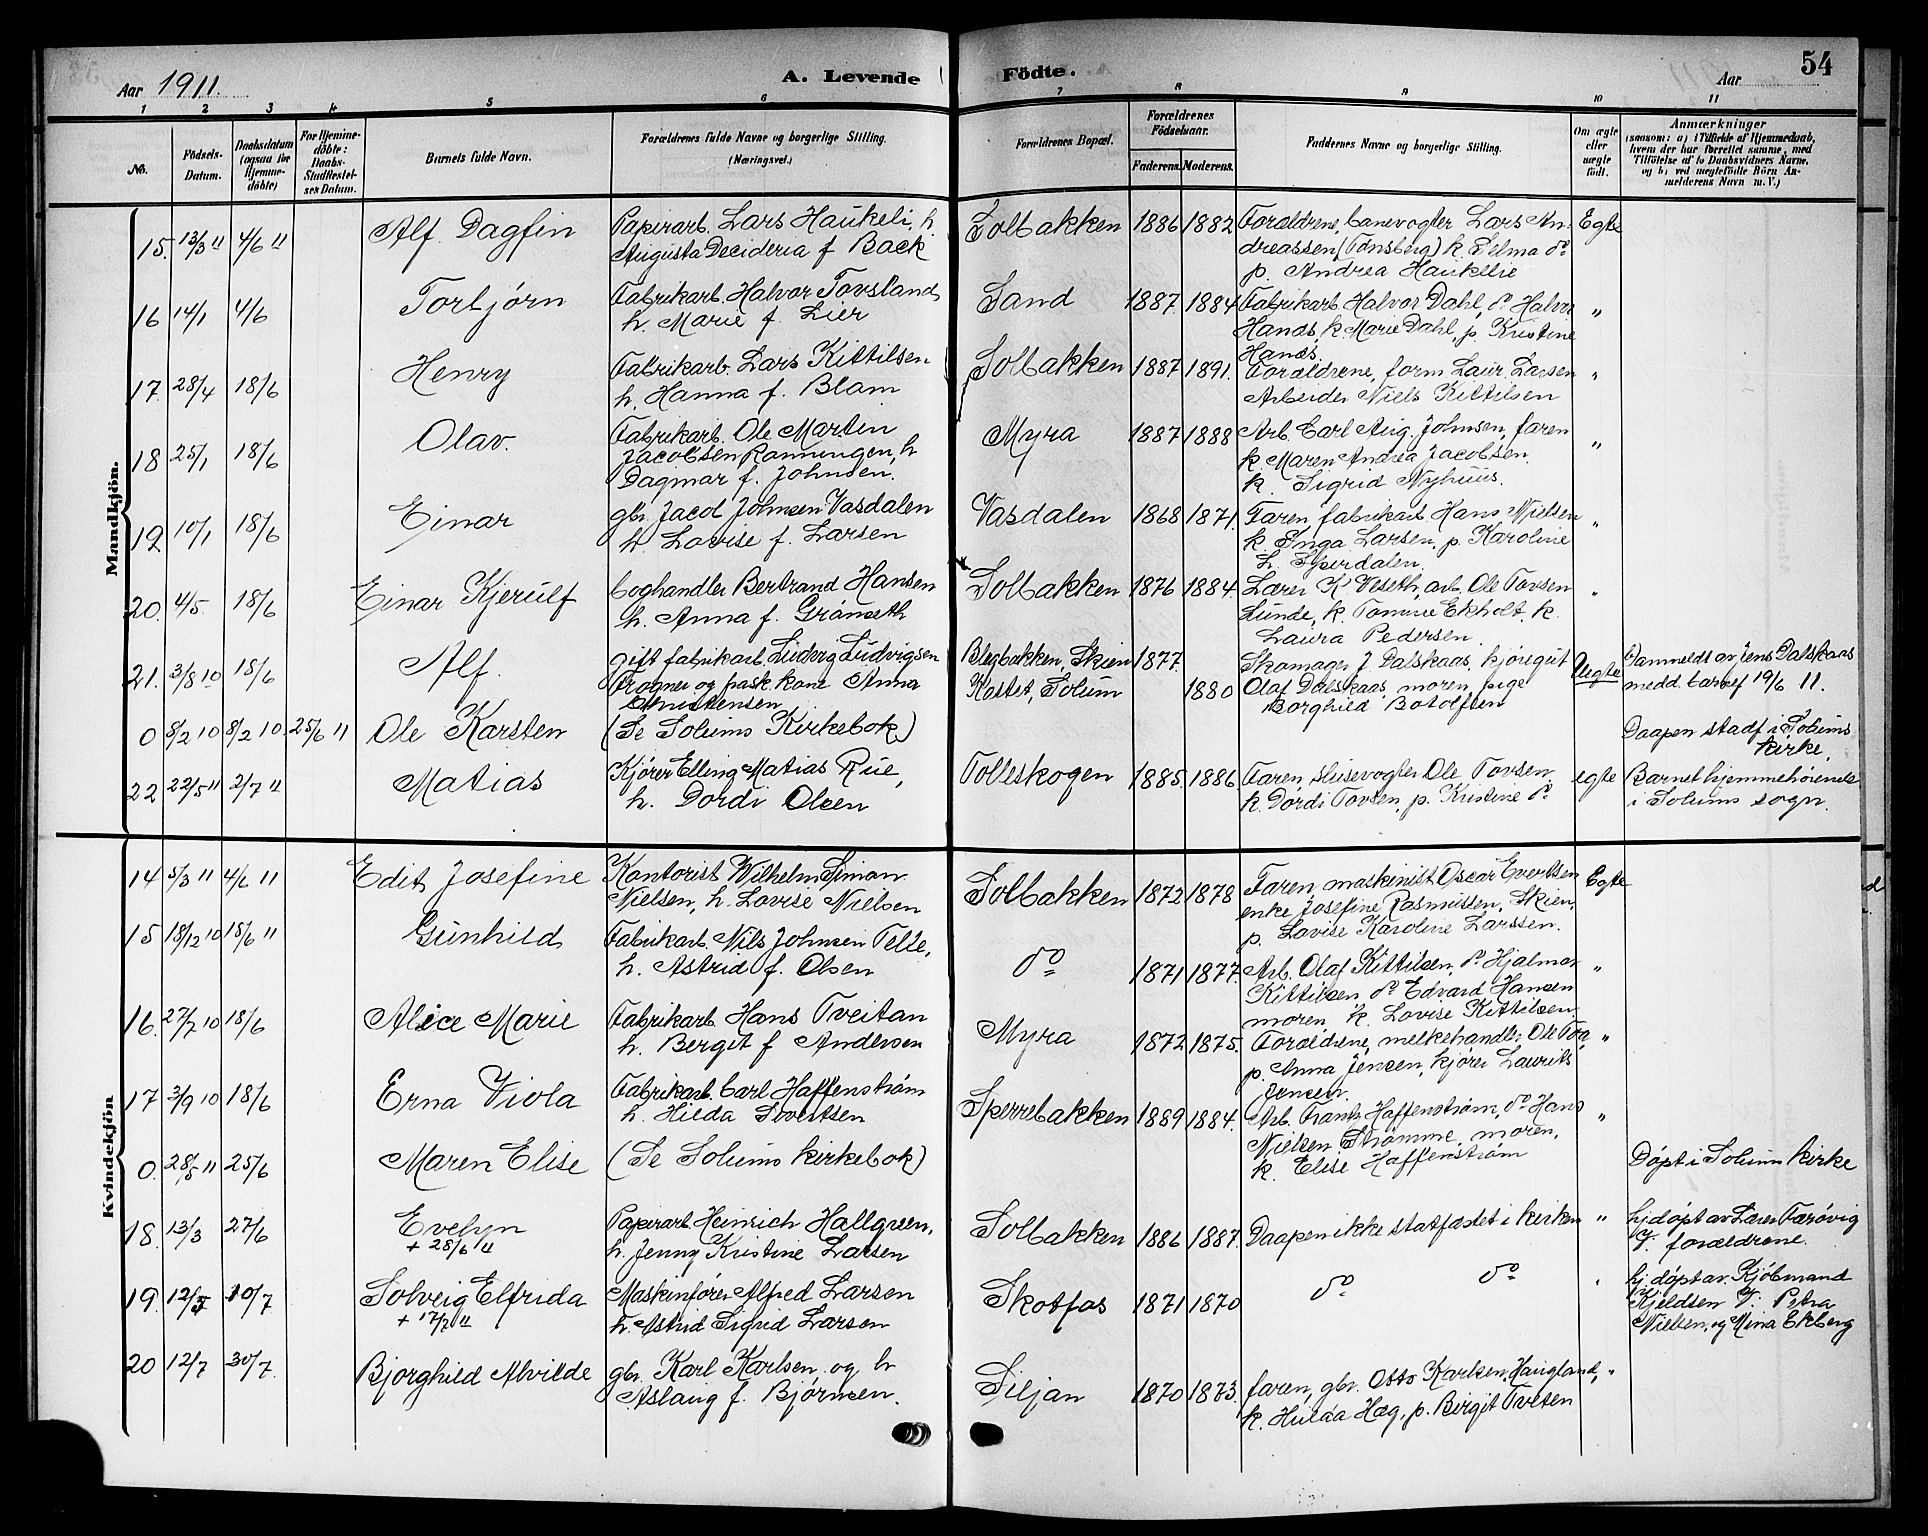 54
Aar 1911. A. Levende Födte. Aar
1 2 3 4 5 6 7 8 9 10 11
No. Födsels-Datum. Daabsdatum (ogsaa for Hjemme-döbte) For Hjemme-döbte: Daabs-Stadfæstel-ses Datum. Barnets fulde Navn. Forældrenes fulde Navne og borgerlige Stilling. (Næringsvei.) Forældrenes Bopæl. Forældrenes Födselsaar. Faderens. Moderens. Faddernes Navne og borgerlige Stilling. Om ægte eller uægte födt. Anmærkninger (saasom: a) i Tilfælde af Hjemmedaab, hvem der har forrettet samme, med Tilföielse af to Daabsvidners Navne, og b) ved uægtefödte Börn An-melderens Navn m. V.)
Mandkjön.
15. 13/3 11 4/6 11 Alf Dagfin Papirarb. Lars Haukeli, h. Solbakken 1886 1882 Forældrene, banevogter Lars An- Egte
Augusta Decideria f Back dreassen (Tønsberg) k. Selma do
p. Andrea Haukelie
16 14/1 4/6 Torbjørn Fabrikarb. Halvor Tovsland Sand 1887 1884 Fabrikarb. Halvor Dahl, do Halvor "
h. Marie f. Lier Hands, k. Marie Dahl, p. Kristine
Hands.
17. 28/4 18/6 Henry Fabrikarb. Lars Kittilsen Solbakken 1887 1891. Forældrene, form Laur. Larsen "
h. Hanna f. Blam Arbeider Niels Kittilsen
18 25/1 18/6 Olav. Fabrikarb. Ole Martin Myra 1887 1888 Arb. Carl Aug. Johnsen, faren "
Jacobsen Rønningen, h k. Maren Andrea Jacobsen
Dagmar f. Johnsen. k. Sigrid Nyhuus.
19 10/1 18/6 Einar gbr. Jacob Johnsen Vasdalen Vasdalen 1868 1871. Faren, fabrikarb. Hans Nielsen "
h. Lovise f. Larsen k. Inga Larsen, p. Karoline
20. 4/5. 18/6 Einar Kjerulf boghandler Bertrand Hansen Solbakken 1876 1884. Lærer K. Veseth, arb. Ole Tovsen "
h. Anna f. Gromseth Lunde, k. Tomine Ekholt, k.
Laura Pedersen
21. 3/8 10 18/6 Alf. gift fabrikarb. Ludvig Ludvigsen Blegbakken, Skien 1877. Skomager J. Dalskaas, kjøregut Uegte Fammeldt av Jens Dalskaas
Krogner og frask. kone Anna Kastet, Solum 1880 Olaf Dalskaas, moren, pige medd. 19/6 11.
Christensen Borghild Botolfsen
0 8/2 10 8/2 10. 25/6 11 Ole Karsten (Se Solums Kirkebok) Daapen stadf i Solums
kirke.
22 22/5 11 2/7 11 Matias Kjører Elling Matias Rue, Tolleskogen 1885. 1886 Faren, slusevogter Ole Tovsen egte Barnet hjemmehørende
h. Dordi Olsen k. Dordi Tovsen, p. Kristine do i Solums sogn.
Kvindekjön
14 5/3 11 4/6 11 Edit Josefine Kontorist Wilhelm Simon Solbakken 1872 1878 Faren, maskinist Oscar Evertsen Egte
Nielsen, h. Lovise Nielsen enke Josefine Rasmussen, Skien,
p. Lovise Karoline Larssen.
15 18/12 10 18/6 11 Gunhild Fabrikarb. Nils Johnsen Telle, do 1871 1877. Arb. Olaf Kittilsen, do Hjalmar "
h. Astrid f. Olsen Kittilsen do Edvard Hansen
moren, k. Lovise Kittilsen
16. 27/7 10 18/6 Alice Marie Fabrikarb. Hans Tveitan Myra 1872 1875. Forældrene, melkehandler Ole "
h. Bergit f Andersen p. Anna Jensen, kjører Laurits
Jensen.
17 3/9 10 18/6 Erna Viola Fabrikarb. Carl Haffenstrøm Sperrebakken 1889 1884. Arb. Frantz Haffenstrøm, do Hans "
h. Hilda Sivertsen Nielsen Strømme, moren,
k. Elise Haffenstrøm
0. 28/5 11 25/6 Maren Elise (Se Solums kirkebok) Døpt i Solums kirke
18. 13/3 27/6 Evelyn Papirarb. Heinrich Hallgreen, Solbakken 1886 1887. Daapen ikke statfæstet i kirken " hjdøpt av Lærer Farøvig
+ 28/6 11 h. Jenny Kristine Larsen V. forældrene.
19. 12/5 10/7 Solveig Elfrida Maskinfører Alfred Larsen Skotfos 1871 1870 do do " hj.døpt av. Kjøbmand
+ 17/7 11 h. Astrid Sigrid Larsen Kjeldsen V. Petra
Nielsen, og Mina Ekberg
20 12/7 30/7. Bjorghild Alvilde gbr. Karl Karlsen og h Siljan 1870 1873. faren, gbr. Otto Karlsen Haugland, "
Aslaug f. Bjørnsen. k. Hulda Hæg, p. Birgit Tveten